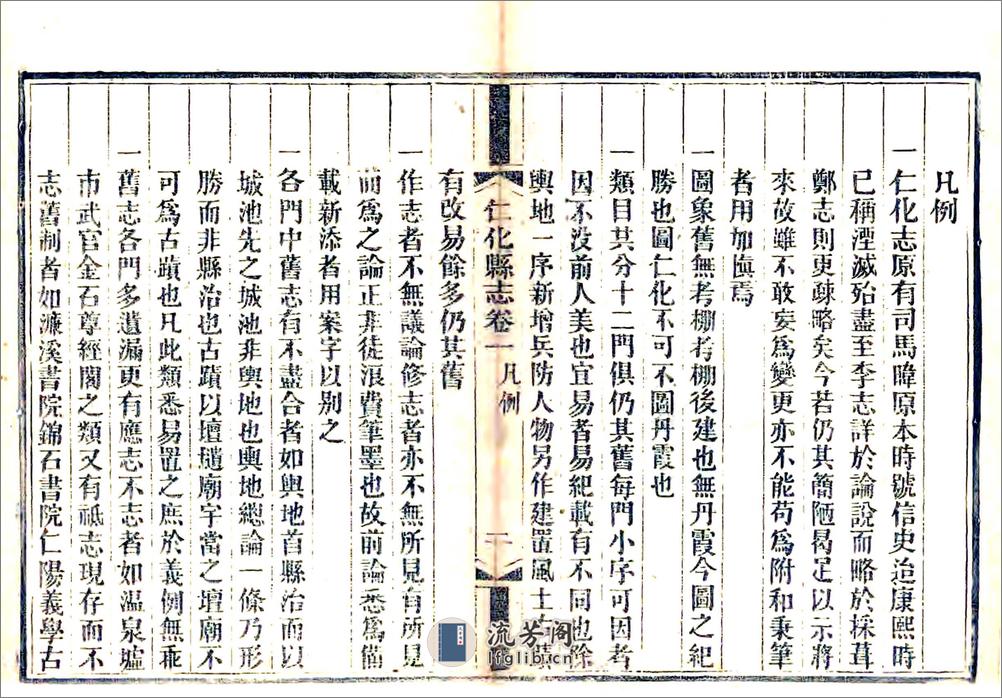 凡例
一仁化志原有司馬暐原本時號信史迨康熙時
已稱湮滅殆盡至李志詳於論說而略於採葺
鄭志則更疎略矣今若仍其簡陋曷足以示將
來故雖不敢妄為變更亦不能苟為附和秉筆
者用加慎焉
一圖象舊無考棚考棚後建也無丹霞今圖之紀
勝也圖仁化不可不圖丹霞也
一類目共分十二門俱仍其舊每門小序可因者
因不没前人美也宜易者易紀載有不同也除
輿地一序新增兵防人物另作建置風土古蹟
有改易餘多仍其舊
仁化縣志卷一 凡例 一
一作志者不無議論修志者亦不無所見有所見
而為之論正非徒浪費筆墨也故前論悉為備
載新添者用案字以别之
一各門中舊志有不盡合者如輿地首縣治而以
城池先之城池非輿地也輿地總論一條乃形
勝而非縣治也古蹟以壇壝廟宇當之壇廟不
可為古蹟也凡此類悉易置之庶於義例無乖
一舊志各門多遺漏更有應志不志者如温泉墟
市武官金石尊經閣之類又有祗志現存而不
志舊制者如濂溪書院錦石書院仁陽義學古
流芳閣
lfglib.cn